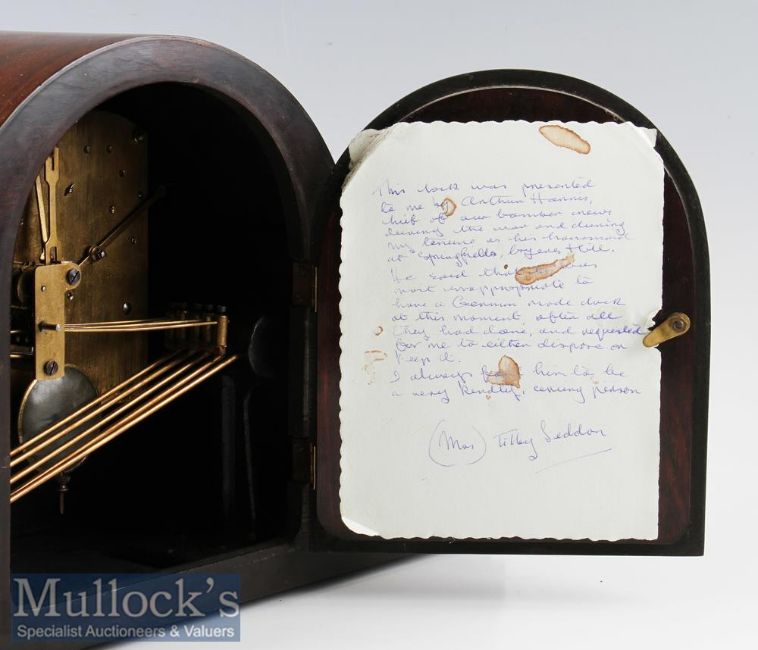 This clock was presented
to me by Arthur Harris,
chief of our bomber crews
during the war and during
my tenure as his housemaid
at Springfields,
He said that
most inappropriate to
have a German made clock
at this moment, after all
they had done, and requested
for me to either dispose or
keep it.
I always him to be
a very kindly, caring person
(Mrs) Tilly Seddon
Mullock's
Specialist Auctioneers & Valuers